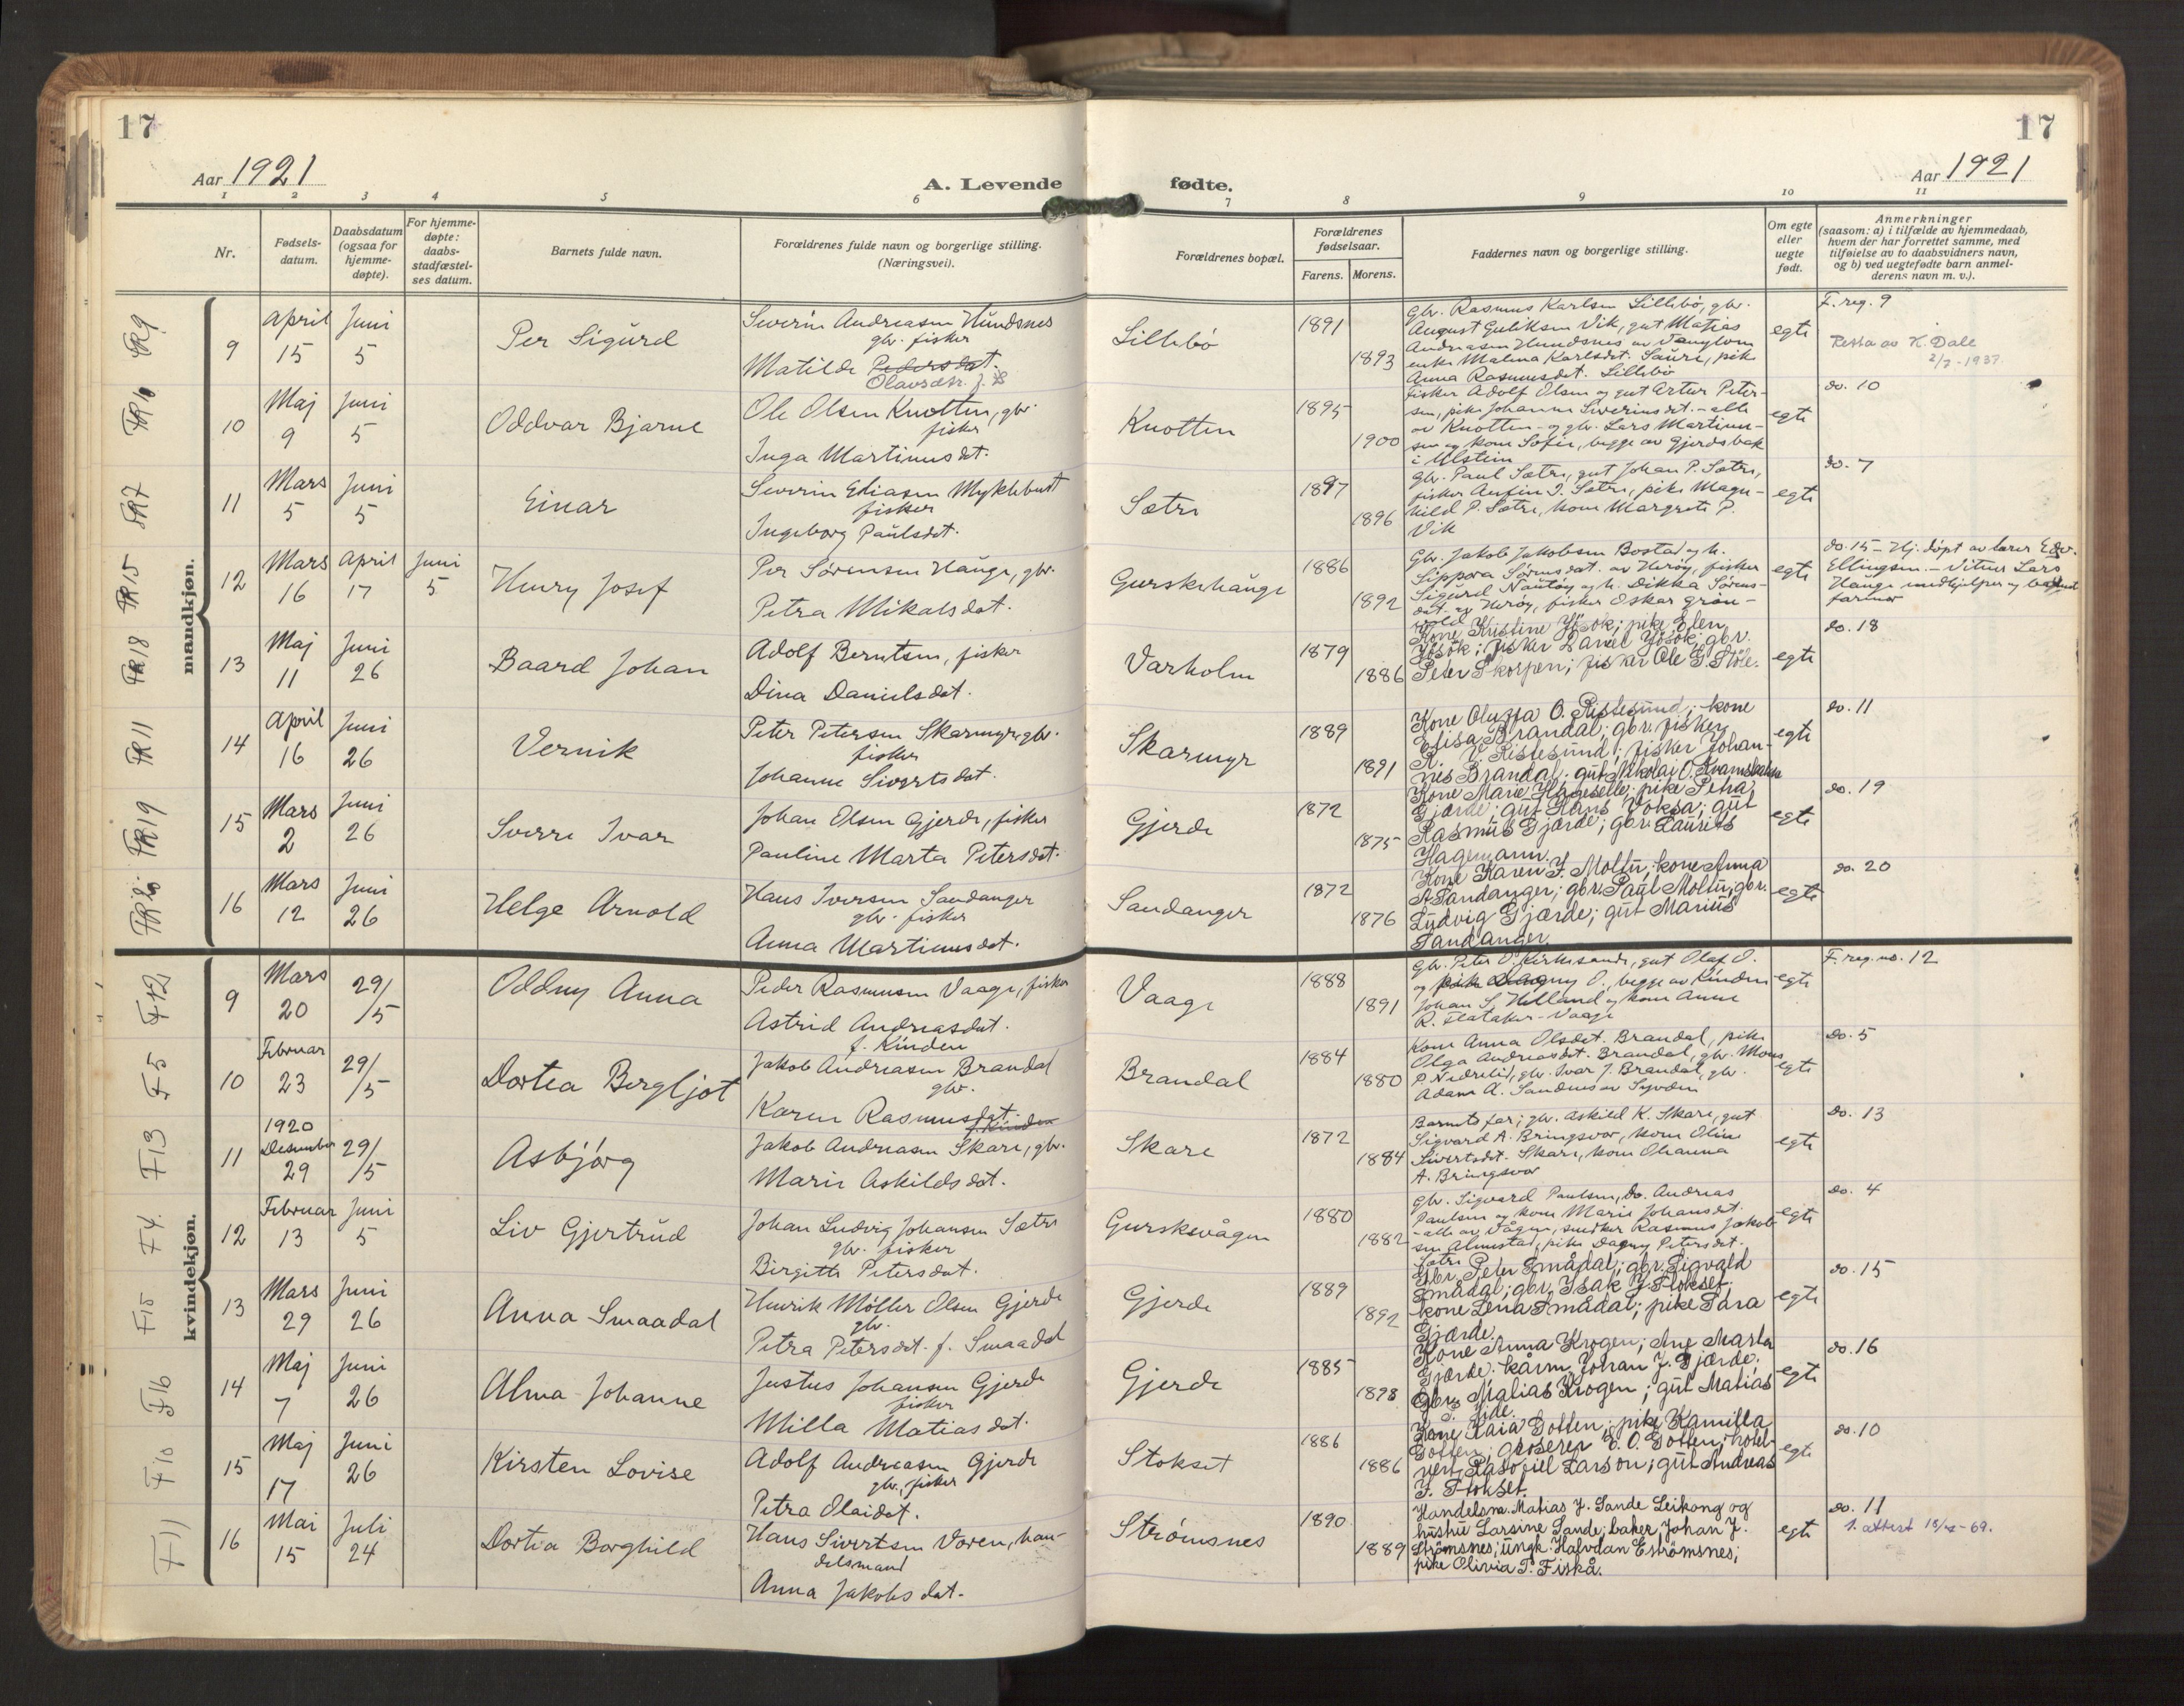 17
17
Aar 1921
A. Levende fødte.
Aar 1921
1 2 3 4 5 6 7 8 9 10 11
Nr.
Fødsels-
datum.
Daabsdatum
(ogsaa for
hjemme-
døpte).
For hjemme-
døpte:
daabs-
stadfæstel-
ses datum.
Barnets fulde navn.
Forældrenes fulde navn og borgerlige stilling.
(Næringsvei).
Forældrenes bopæl.
Forældrenes
fødselsaar.
Farens. Morens.
Faddernes navn og borgerlige stilling.
Om egte
eller
uegte
født.
Anmerkninger
(saasom: a) i tilfælde av hjemmedaab,
hvem der har forrettet samme, med
tilføielse av to daabsvidners navn,
og b) ved uegtefødte barn anmel-
derens navn m. v.).
mandkjøn.
9
April
15
Juni
5
Per Sigurd
Severin Andreasen Hundsnes
gbr. fisker
Matilde Pedersdat.
Olavsdtr.
Lillebø
1891
1893
Gbr. Rasmus Karlsen Lillebø, gbr.
August Guliksen Vik, gut Matias
Andreasen Hundsnes av Vanylven
enke Malena Karlsdat. Saure, pike
Anna Rasmusdat. Lillebø
egte
F. reg. 9
Resta av K. Dale
2/7-1937.
10
Maj
9
Juni
5
Oddvar Bjarne
Ole Olsen Knotten, gbr.
fisker
Inga Martinusdt.
Knotten
1895
1900
fisker Adolf Olsen og gut Artur Peter-
sen, pike Johanne Severinsdt. - alle
av Knotten - og gbr. Lars Martinus-
sen og kone Sofie, begge av Gjerdsbak
i Ulstein
egte
do. 10
11
Mars
5
Juni
5
Einar
Severin Eliasen Myklebust
fisker
Ingeborg Paulsdt.
Sætre
1897
1896
Gbr. Paul Sætre, gut Johan P. Sætre,
fisker Anfin I. Sætre, pike Magn-
hild P. Sætre, kone Margrete P.
Vik
egte
do. 7
12
Mars
16
April
17
Juni
5
Henry Josef
Per Sørensen Hauge, gbr.
Petra Mikalsdat.
Gurskehauge
1886
1892
Gbr. Jakob Jakobsen Bostad og h.
Sippora Sørensdat. av Herøy, fisker
Sigurd Nautøy og h. Dikka Sørens-
dat. av Herøy, fisker Oskar Grøn-
vold
egte
do. 15 - Hj. døpt av lærer Edv.
Ellingsen. - Vitner Lars
Hauge medhjelper og barnet
farmor
13
Maj
11
Juni
26
Baard Johan
Adolf Berntsen, fisker
Dina Danielsdat.
Varholm
1879
1886
Kone Kristine Ysøk; pike Elen
Ysøk; fisker Daniel Ysøk; gbr.
Peter Skorpen; fisker Ole G. Støle.
egte
do. 18
14
April
16
Juni
26
Vernik
Peter Petersen Skarmyr, gbr.
fisker
Johanne Sivertsdat.
Skarmyr
1889
1891
Kone Olufia O. Ristesund; kone
Elisa Brandal; gbr. fisker
R. V. Ristesund; fisker Johan-
nes Brandal; gut Nikolai O. Kvamsbakken
egte
do. 11
15
Mars
2
Juni
26
Sverre Ivar
Johan Olsen Gjerde, fisker
Pauline Marta Petersdat.
Gjerde
1872
1875
Kone Marie Hageselle; pike Petra
Gjærde; gut Hans Voksa; gut
Rasmus Gjærde; gbr. Laurits
Hagemann.
egte
do. 19
16
Mars
12
Juni
26
Helge Arnold
Hans Iversen Sandanger
gbr. fisker
Anna Martinusdat.
Sandanger
1872
1876
Kone Karen J. Moltu; kone Anna
A. Sandanger; gbr. Paul Moltu; gbr.
Ludvig Gjærde; gut Marius
Sandanger.
egte
do. 20
kvindekjøn.
F12
9
Mars
20
29/5
Oddny Anna
Peder Rasmusen Vaage, fisker
Astrid Andreasdat.
f. Kinden
Vaage
1888
1891
Gbr. Peter O. Kirkesande, gut Olaf O.
og pike Dagny O., begge av Kinden
Johan S. Helland og kone Anne
R. Flataker - Vaage
egte
F. reg. no. 12
F5
10
Februar
23
29/5
Dortea Bergljot
Jakob Andreasen Brandal
gbr.
Karen Rasmusdat.
f. Kinden
Brandal
1884
1880
Kone Anna Olsdat. Brandal, pike
Olga Andreasdat. Brandal, gbr. Mons
P. Nedrelid, gbr. Ivar J. Brandal, gbr.
Adam A. Sandnes av Syvden
egte
Do. 5
F13
11
1920
Desember
29
29/5
Asbjørg
Jakob Andreasen Skare, gbr.
Marie Askildsdat.
Skare
1872
1884
Barnets far; gbr. Askild K. Skare, gut
Sigvard A. Bringsvor, kone Oline
Sivertsdt. Skare, kone Olianna
A. Bringsvor
egte
Do. 13
F4.
12
Februar
13
Juni
5
Liv Gjertrud
Johan Ludvig Johansen Sætre
gbr. fisker
Birgitte Petersdat.
Gurskevågen
1880
1882
Gbr. Sigvard Paulsen, do. Andreas
Paulsen og kone Marie Johansdat.
- alle av Vågen, snedker Rasmus Jakob-
sen Almestad, pike Dagny Petersdt.
Sætre
egte
do. 4
F15
13
Mars
29
Juni
26
Anna Smaadal
Henrik Møller Olsen Gjerde
gbr.
Petra Petersdt. f. Smaadal
Gjerde
1889
1892
Gbr. Peter Smådal; gbr. Sigvald
Smådal; gbr. Isak J. Stokset;
kone Lena Smådal; pike Sara
Gjærde.
egte
do. 15
F16
14
Maj
7
Juni
26
Alma Johanne
Justus Johansen Gjerde
fisker
Milla Matiasdat.
Gjerde
1885
1898
Kone Anna Krogen; Ane Marta
Gjærde; kårm. Johan J. Gjærde;
Gbr. Matias Krogen; gut Matias
egte
do. 16
F10
15
Maj
17
Juni
26
Kirsten Lovise
Adolf Andreasen Gjerde
gbr., fisker
Petra Olaidat.
Stokset
1886
1886
Kone Kaia Gotten; pike Kamilla
Gotten; groserer E. O. Gotten; hotel-
vert Larson; gut Andreas
J. Stokset.
egte
do. 10
F11
16
Mai
15
Juli
24
Dortea Borghild
Hans Sivertsen Voren, han-
delsmand
Anna Jakobsdat.
Strømsnes
1890
1889
Handelsm. Matias J. Sande Leikong og
hustru Larsine Sande; baker Johan J.
Strømsnes; ungk. Halvdan E. Strømsnes;
pike Olivia P. Fiskå.
egte
do. 11
1. attest 18/12-69.